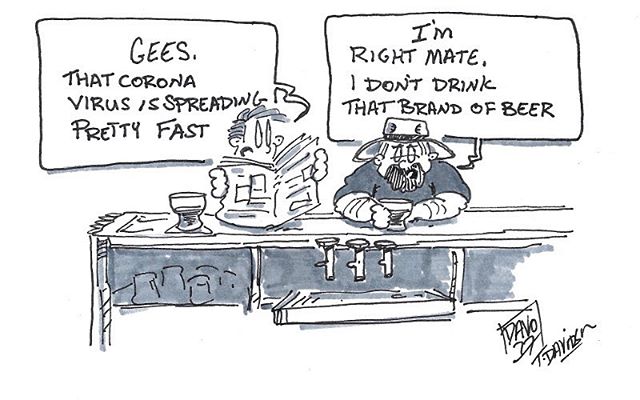 GEES.
THAT CORONA
VIRUS IS SPREADING
PRETTY FAST
I'M
RIGHT MATE.
I DON'T DRINK
THAT BRAND OF BEER
DAVO